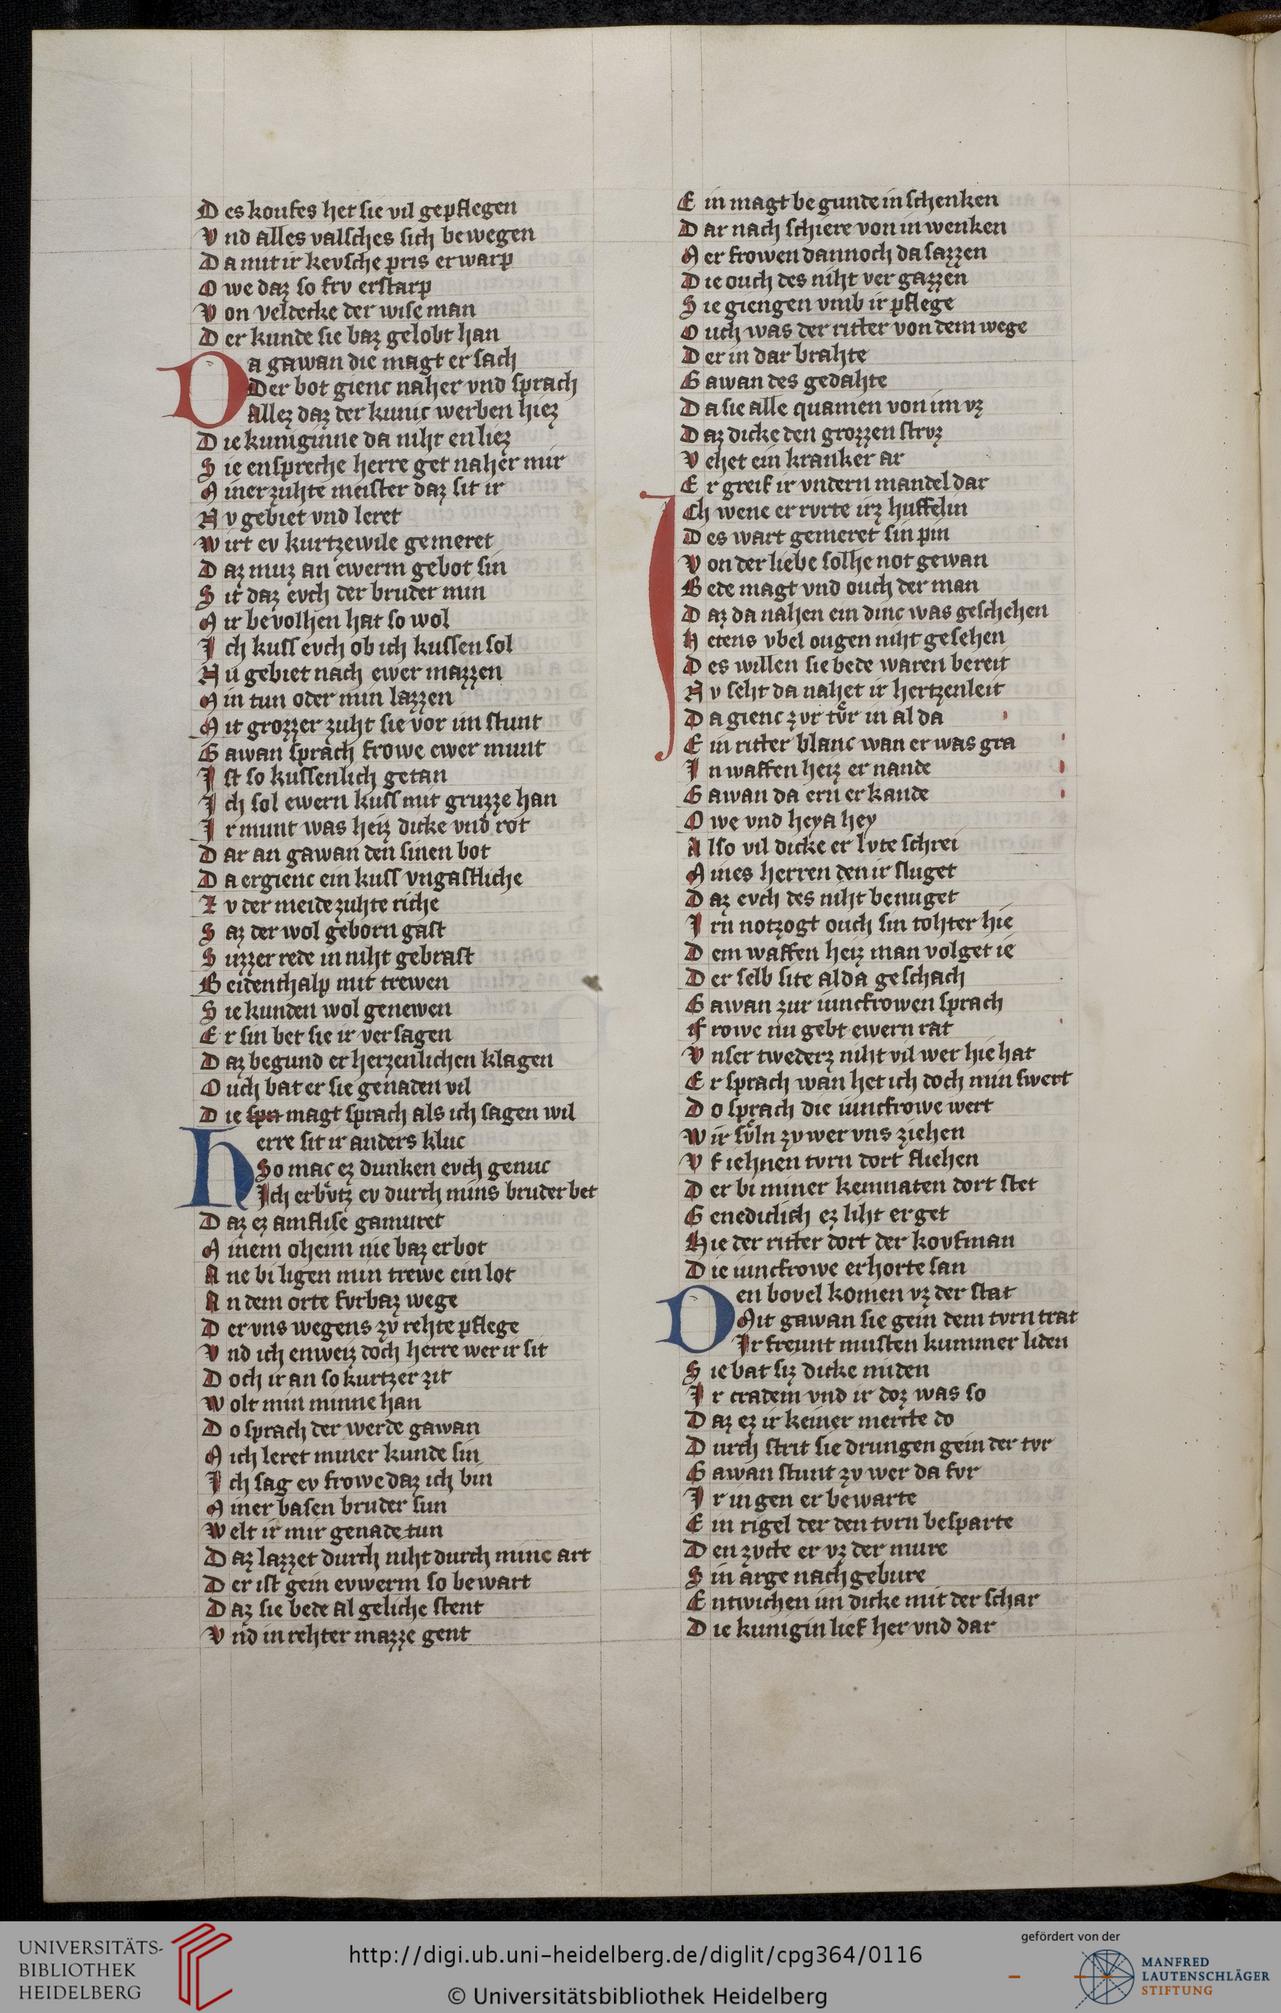 Des koufes het sie vil gepflegen
Vnd alles valsches sich bewegen
Da mit ir kevsche pris erwarp
Owe daz so frv erstarp
Von veldecke der wise man
Der kunde sie baz gelobt han
Da gawan die magt ersach
Der bot gienc naher vnd sprach
Allez daz der kunic werben hiez
Die kuniginne da niht enliez
Sie enspreche herre get naher mir
Miner zuhte meister daz sit ir
Nv gebiet vnd leret
Wirt ev kurtzewile gemeret
Daz muz an ewerm gebot sin
Sit daz evch der bruder min
Mir bevolhen hat so wol
Ich kuss evch ob ich kussen sol
Nu gebiet nach ewer mazzen
Min tun oder min lazzen
Mit grozzer zuht sie vor im stunt
Gawan sprach frowe ewer munt
Ist so kussenlich getan
Ich sol ewern kuss mit gruzze han
Ir munt was heiz dicke vnd rot
Dar an gawan den sinen bot
Da ergienc ein kuss vngastliche
Zv der meide zuhte riche
Saz der wol geborn gast
Suzzer rede in niht gebrast
Beidenthalp mit trewen
Sie kunden wol genewen
Er sin bet sie ir versagen
Daz begund er herzenlichen klagen
Ouch bat er sie genaden vil
Die magt sprach als ich sagen wil
Herre sit ir anders kluc
So mac ez dunken evch genuc
Ich erbvtz ev durch mins bruder bet
Daz ez amflise gamuret
Minem oheim nie baz erbot
Ane bi ligen min trewe ein lot
An dem orte fvrbaz wege
Der vns wegens zv rehte pflege
Vnd ich enweiz doch herre wer ir sit
Doch ir an so kurtzer zit
Wolt min minne han
Do sprach der werde gawan
Mich leret miner kunde sin
Ich sag ev frowe daz ich bin
Miner basen bruder sun
Welt ir mir genade tun
Daz lazzet durch niht durch minc art
Der ist gein evwerm so bewart
Daz sie bede al geliche stent
Vnd in rehter mazze gent
Ein magt begunde in schenken
Dar nach schiere von in wenken
Mer frowen dannoch da sazzen
Die ouch des niht vergazzen
Sie giengen vmb ir pflege
Ouch was der ritter von dem wege
Der in dar brahte
Gawan des gedahte
Da sie alle quamen von im vz
Daz dicke den grozzen strvz
Vehet ein kranker ar
Er greif ir vndern mandel dar
Ich wene er rvrte irz huffelin
Des wart gemeret sin pin
Von der liebe solhe not gewan
Bede magt vnd ouch der man
Daz da nahen ein dinc was geschehen
Hetens vbel ougen niht gesehen
Des willen sie bede waren bereit
Nv seht da nahet ir hertzenleit
Da gienc zvr tvr in al da
Ein ritter blanc wan er was gra
In waffen heiz er nande
Gawan da ern erkande
Owe vnd heya hey
Also vil dicke er lvte schrei
Mines herren den ir sluget
Daz evch des niht benuget
Irn notzogt ouch sin tohter hie
Dem waffen heiz man volget ie
Der selb site alda geschach
Gawan zur iuncfrowen sprach
Frowe nu gebt ewern rat
Vnser twederz niht vil wer hie hat
Er sprach wan het ich doch min swert
Do sprach die iuncfrowe wert
Wir svln zv wer vns ziehen
Vf iehnen tvrn dort fliehen
Der bi miner kemnaten dort stet
Genediclich ez liht erget
Hie der ritter dort der kovfman
Die iuncfrowe erhorte san
Den bovel komen vz der stat
Mit gawan sie gein dem tvrn trat
Ir freunt musten kummer liden
Sie bat siz dicke miden
Ir cradem vnd ir doz was so
Daz ez ir keiner mercte do
Durch strit sie drungen gein der tvr
Gawan stunt zv wer da fvr
Ir in gen er bewarte
Ein rigel der den tvrn besparte
Den zvcte er vz der mure
Sin arge nachgebure
Entwichen im dicke mit der schar
Die kunigin lief her vnd dar
UNIVERSITÄTS-
BIBLIOTHEK
HEIDELBERG
http://digi.ub.uni-heidelberg.de/diglit/cpg364/0116
© Universitätsbibliothek Heidelberg
gefördert von der
MANFRED
LAUTENSCHLÄGER
STIFTUNG